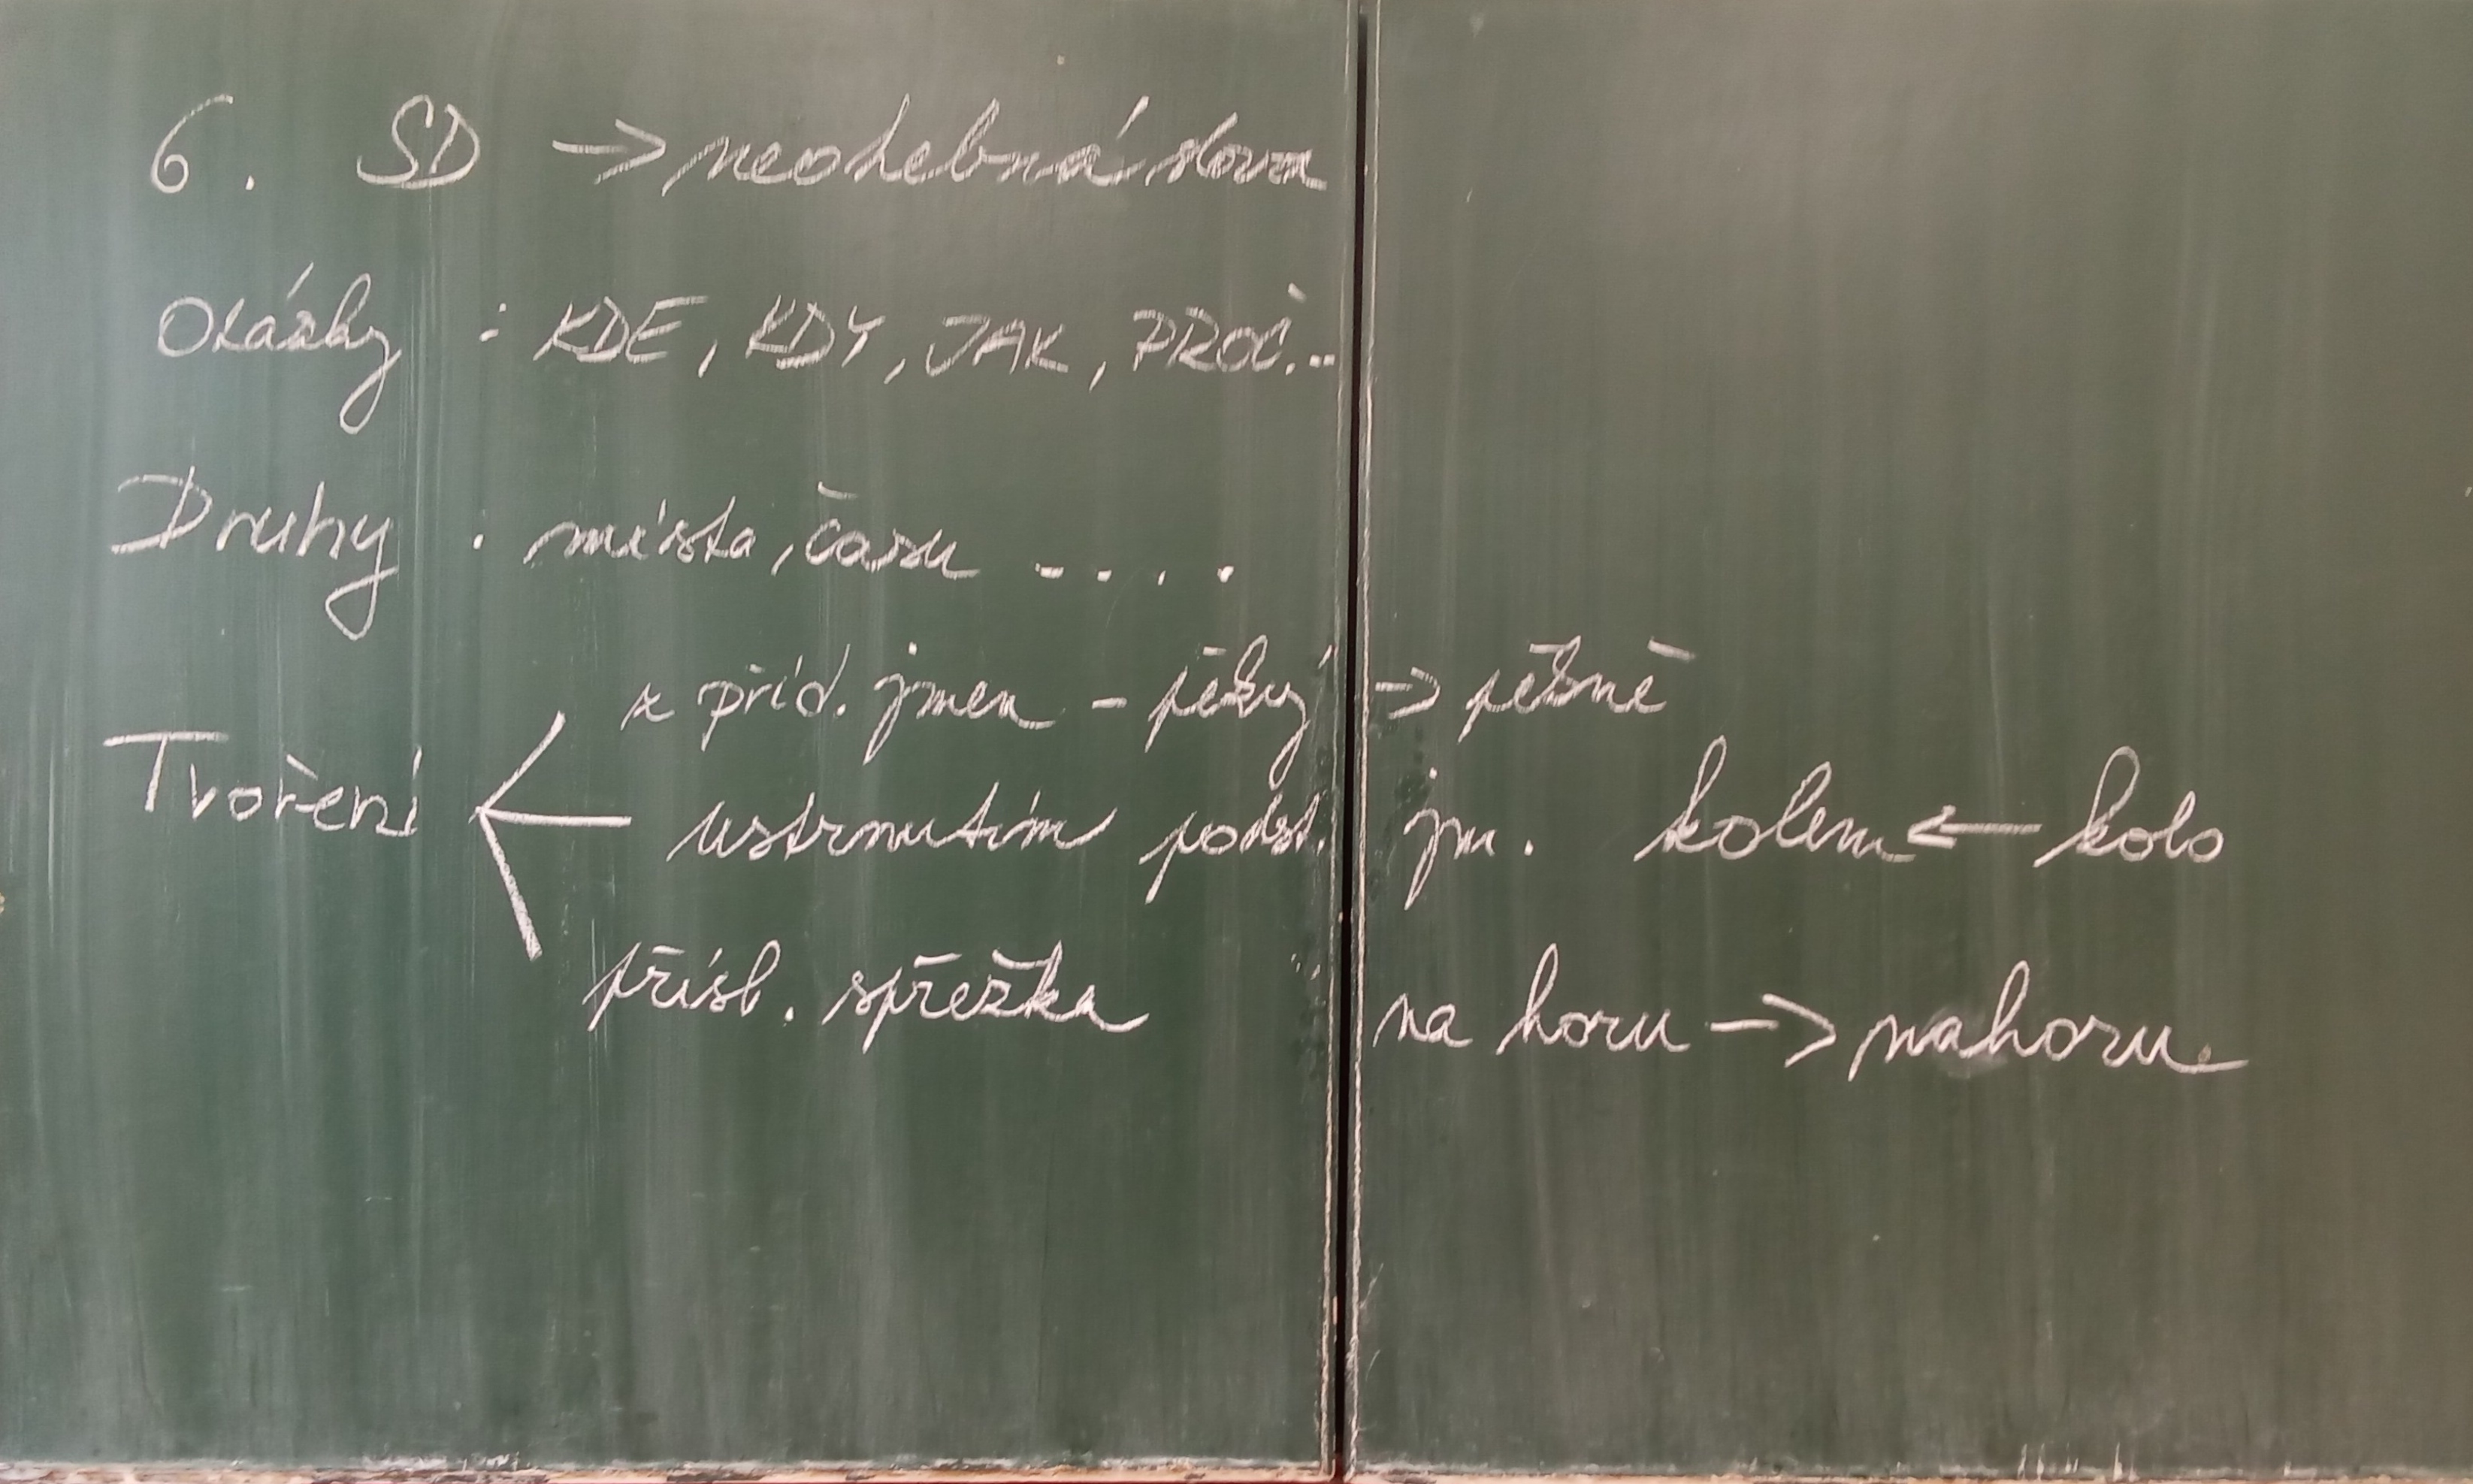 6. SD → neohebná slova
Otázky : KDE, KDY, JAK, PROČ...
Druhy : místa, času ....
z příd. jmen - pěkný → pěkně
Tvoření
ustrnutím podst. jm. kolem ← kolo
přísl. spřežka na horu → nahoru